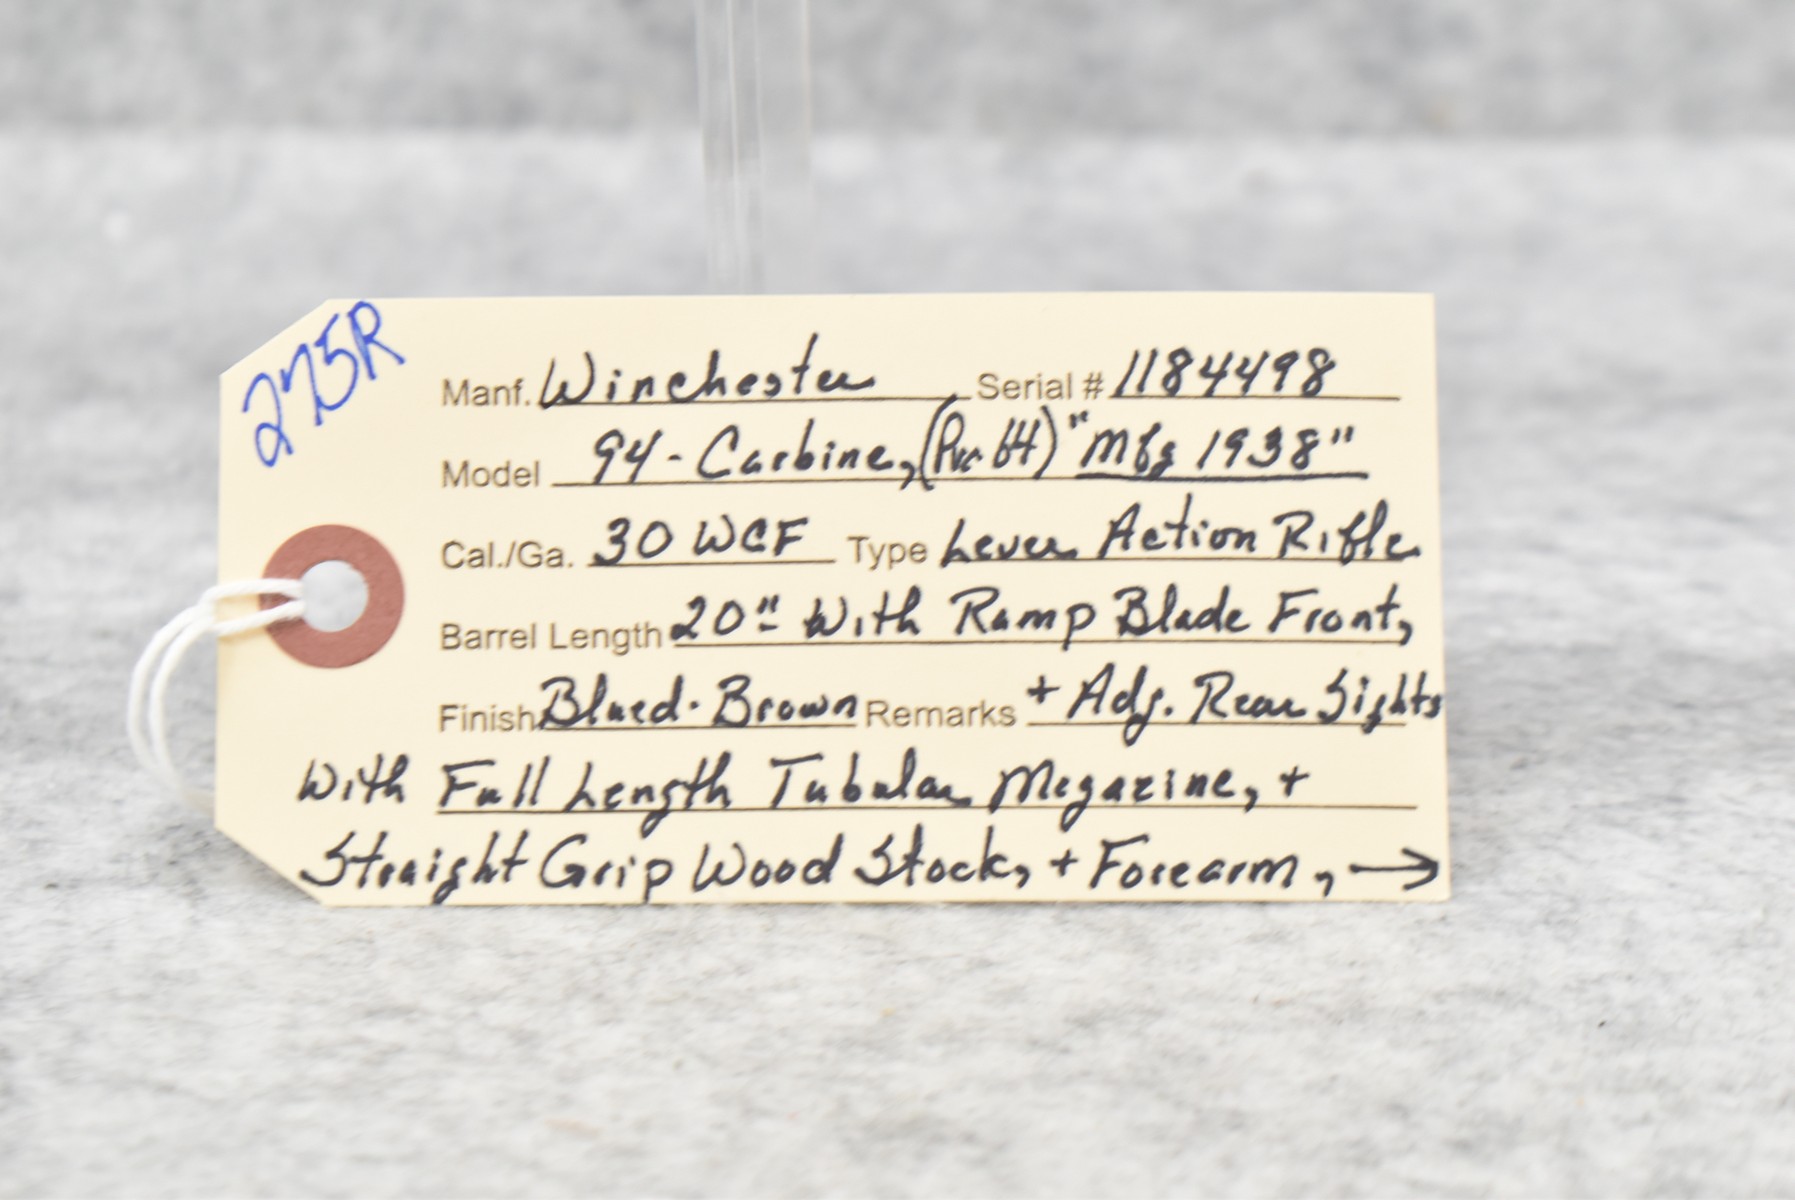 275R
Manf. Winchester Serial # 1184498
Model 94-Carbine, (Pre 64) "Mfg 1938"
Cal./Ga. 30 WCF Type Lever Action Rifle
Barrel Length 20" With Ramp Blade Front,
Finish Blued-Brown Remarks + Adj. Rear Sights
With Full Length Tubular Megazine, +
Straight Grip Wood Stock, + Forearm, →